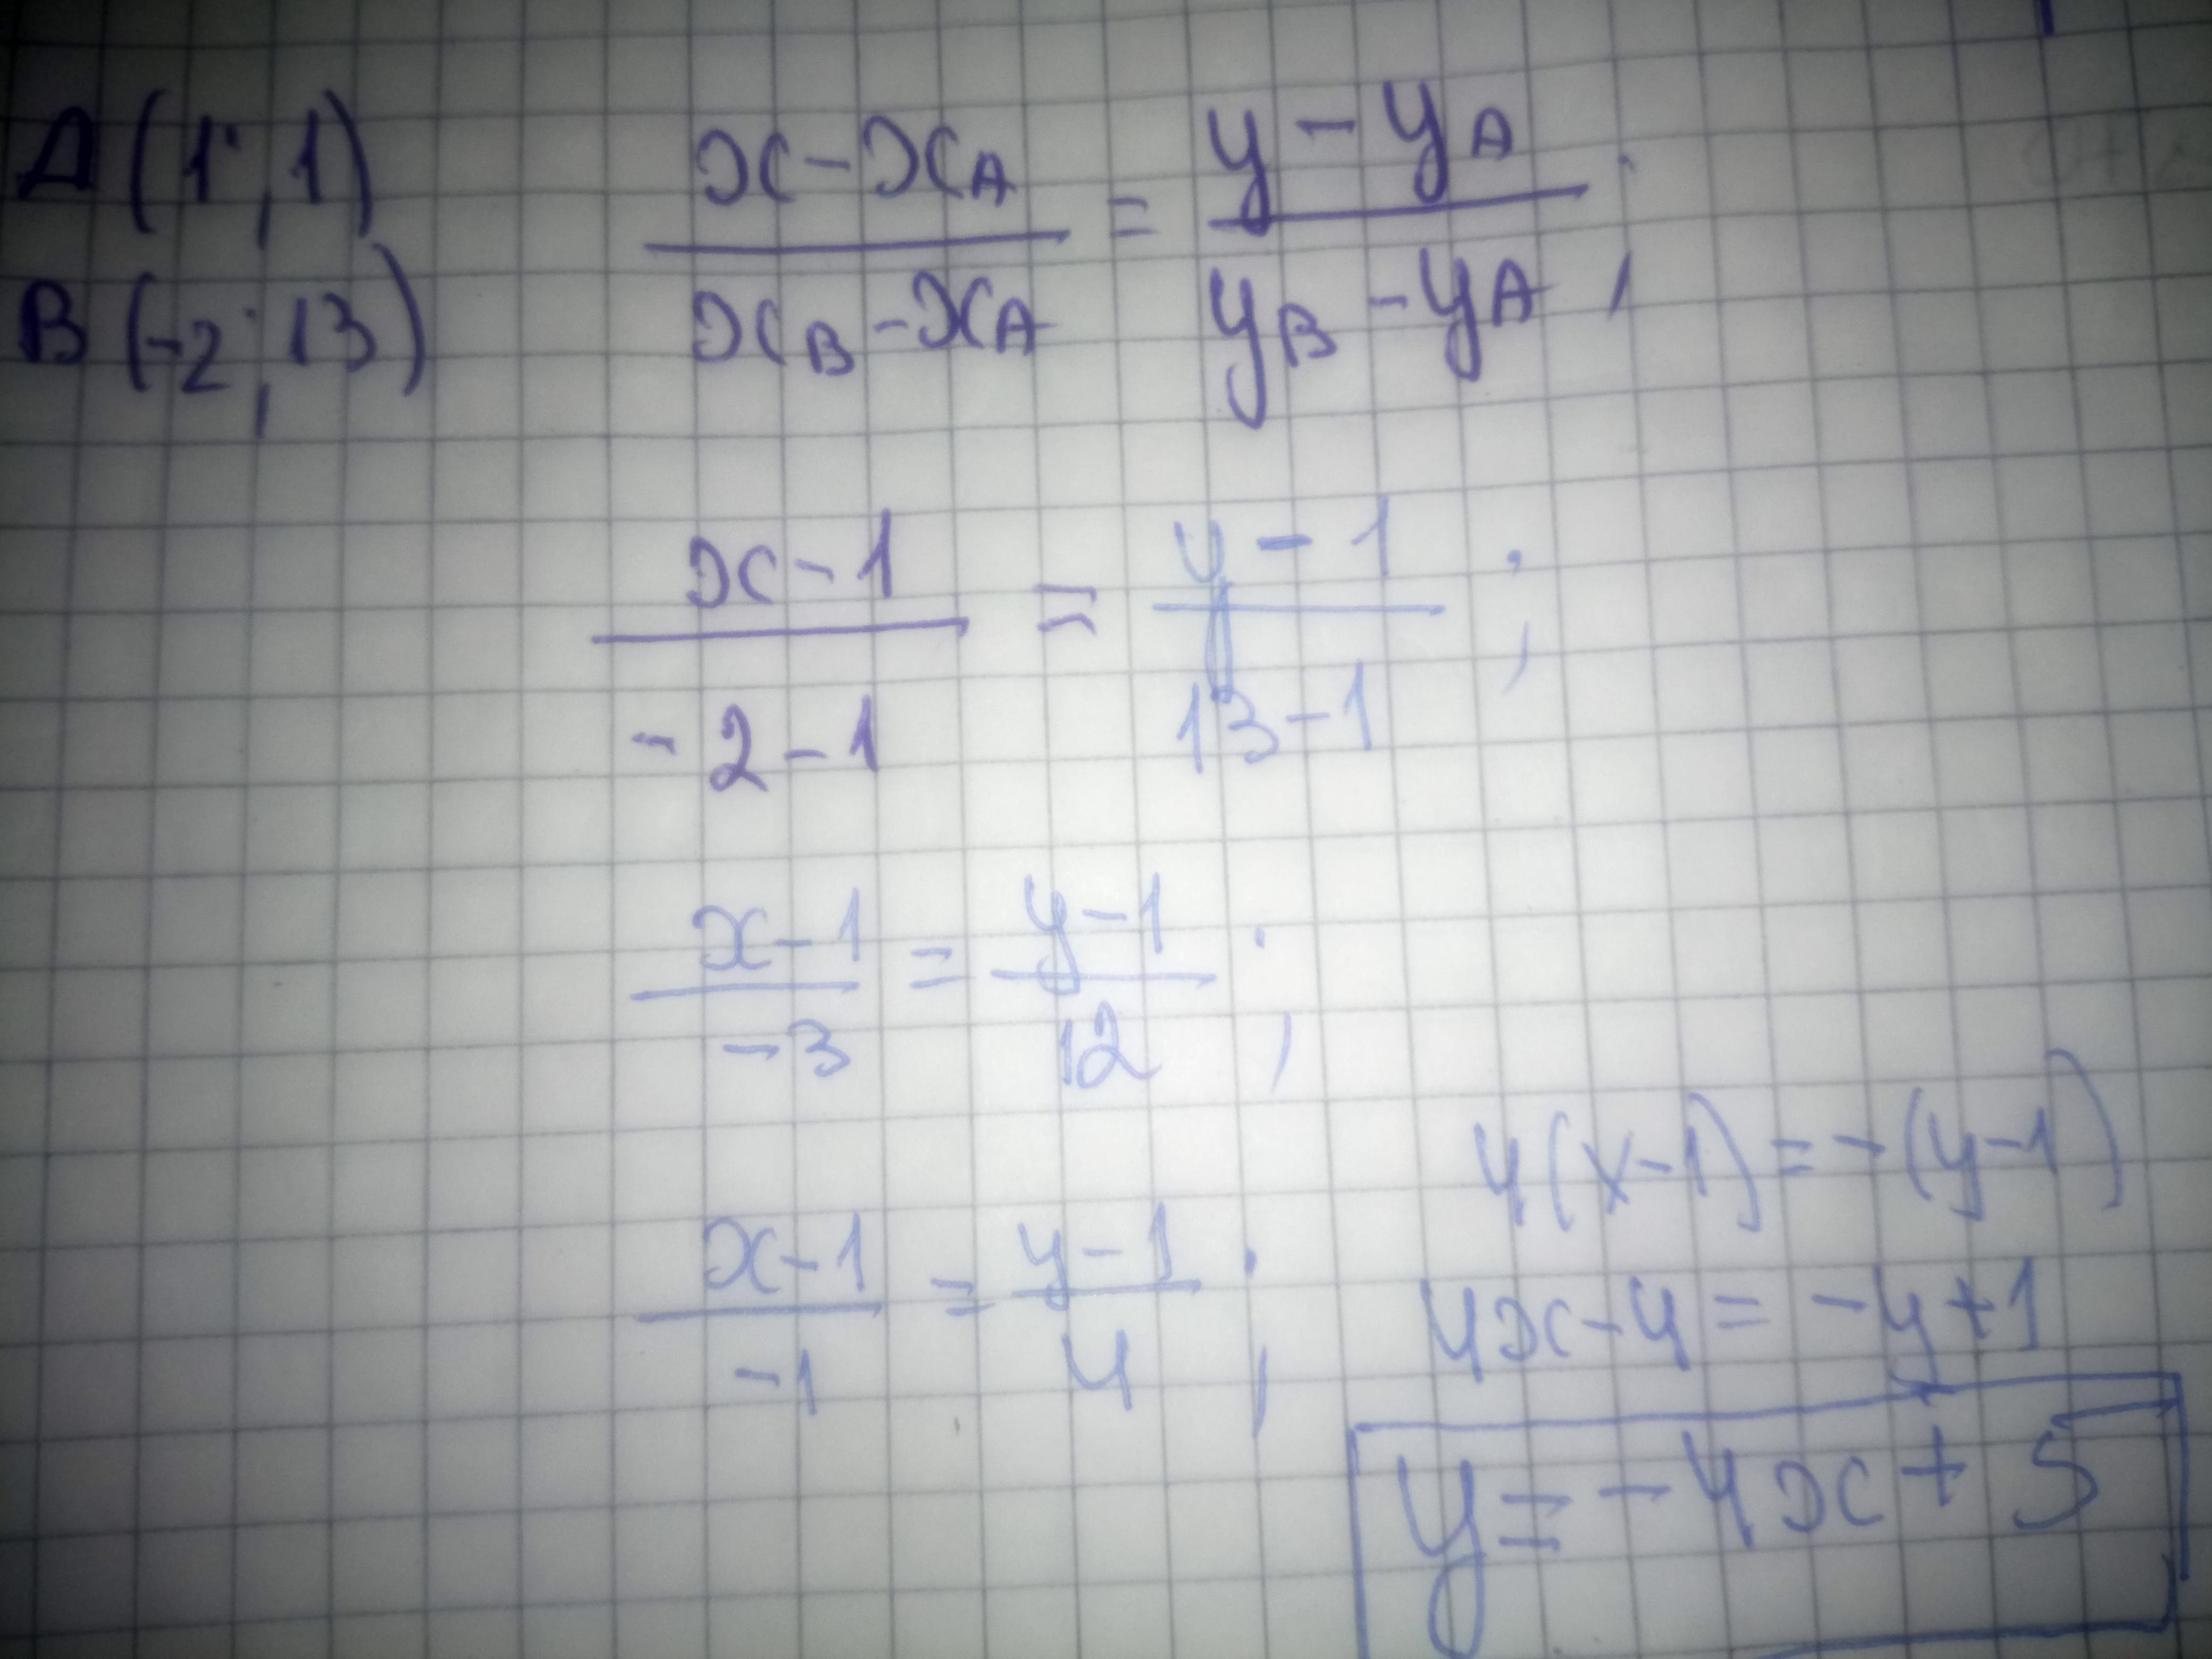 A (1; 1)
B (-2; 13)
(x - x_A)/(x_B - x_A) = (y - y_A)/(y_B - y_A);
(x - 1)/(-2 - 1) = (y - 1)/(13 - 1);
(x - 1)/(-3) = (y - 1)/12;
(x - 1)/(-1) = (y - 1)/4;
4(x - 1) = -(y - 1)
4x - 4 = -y + 1
y = -4x + 5